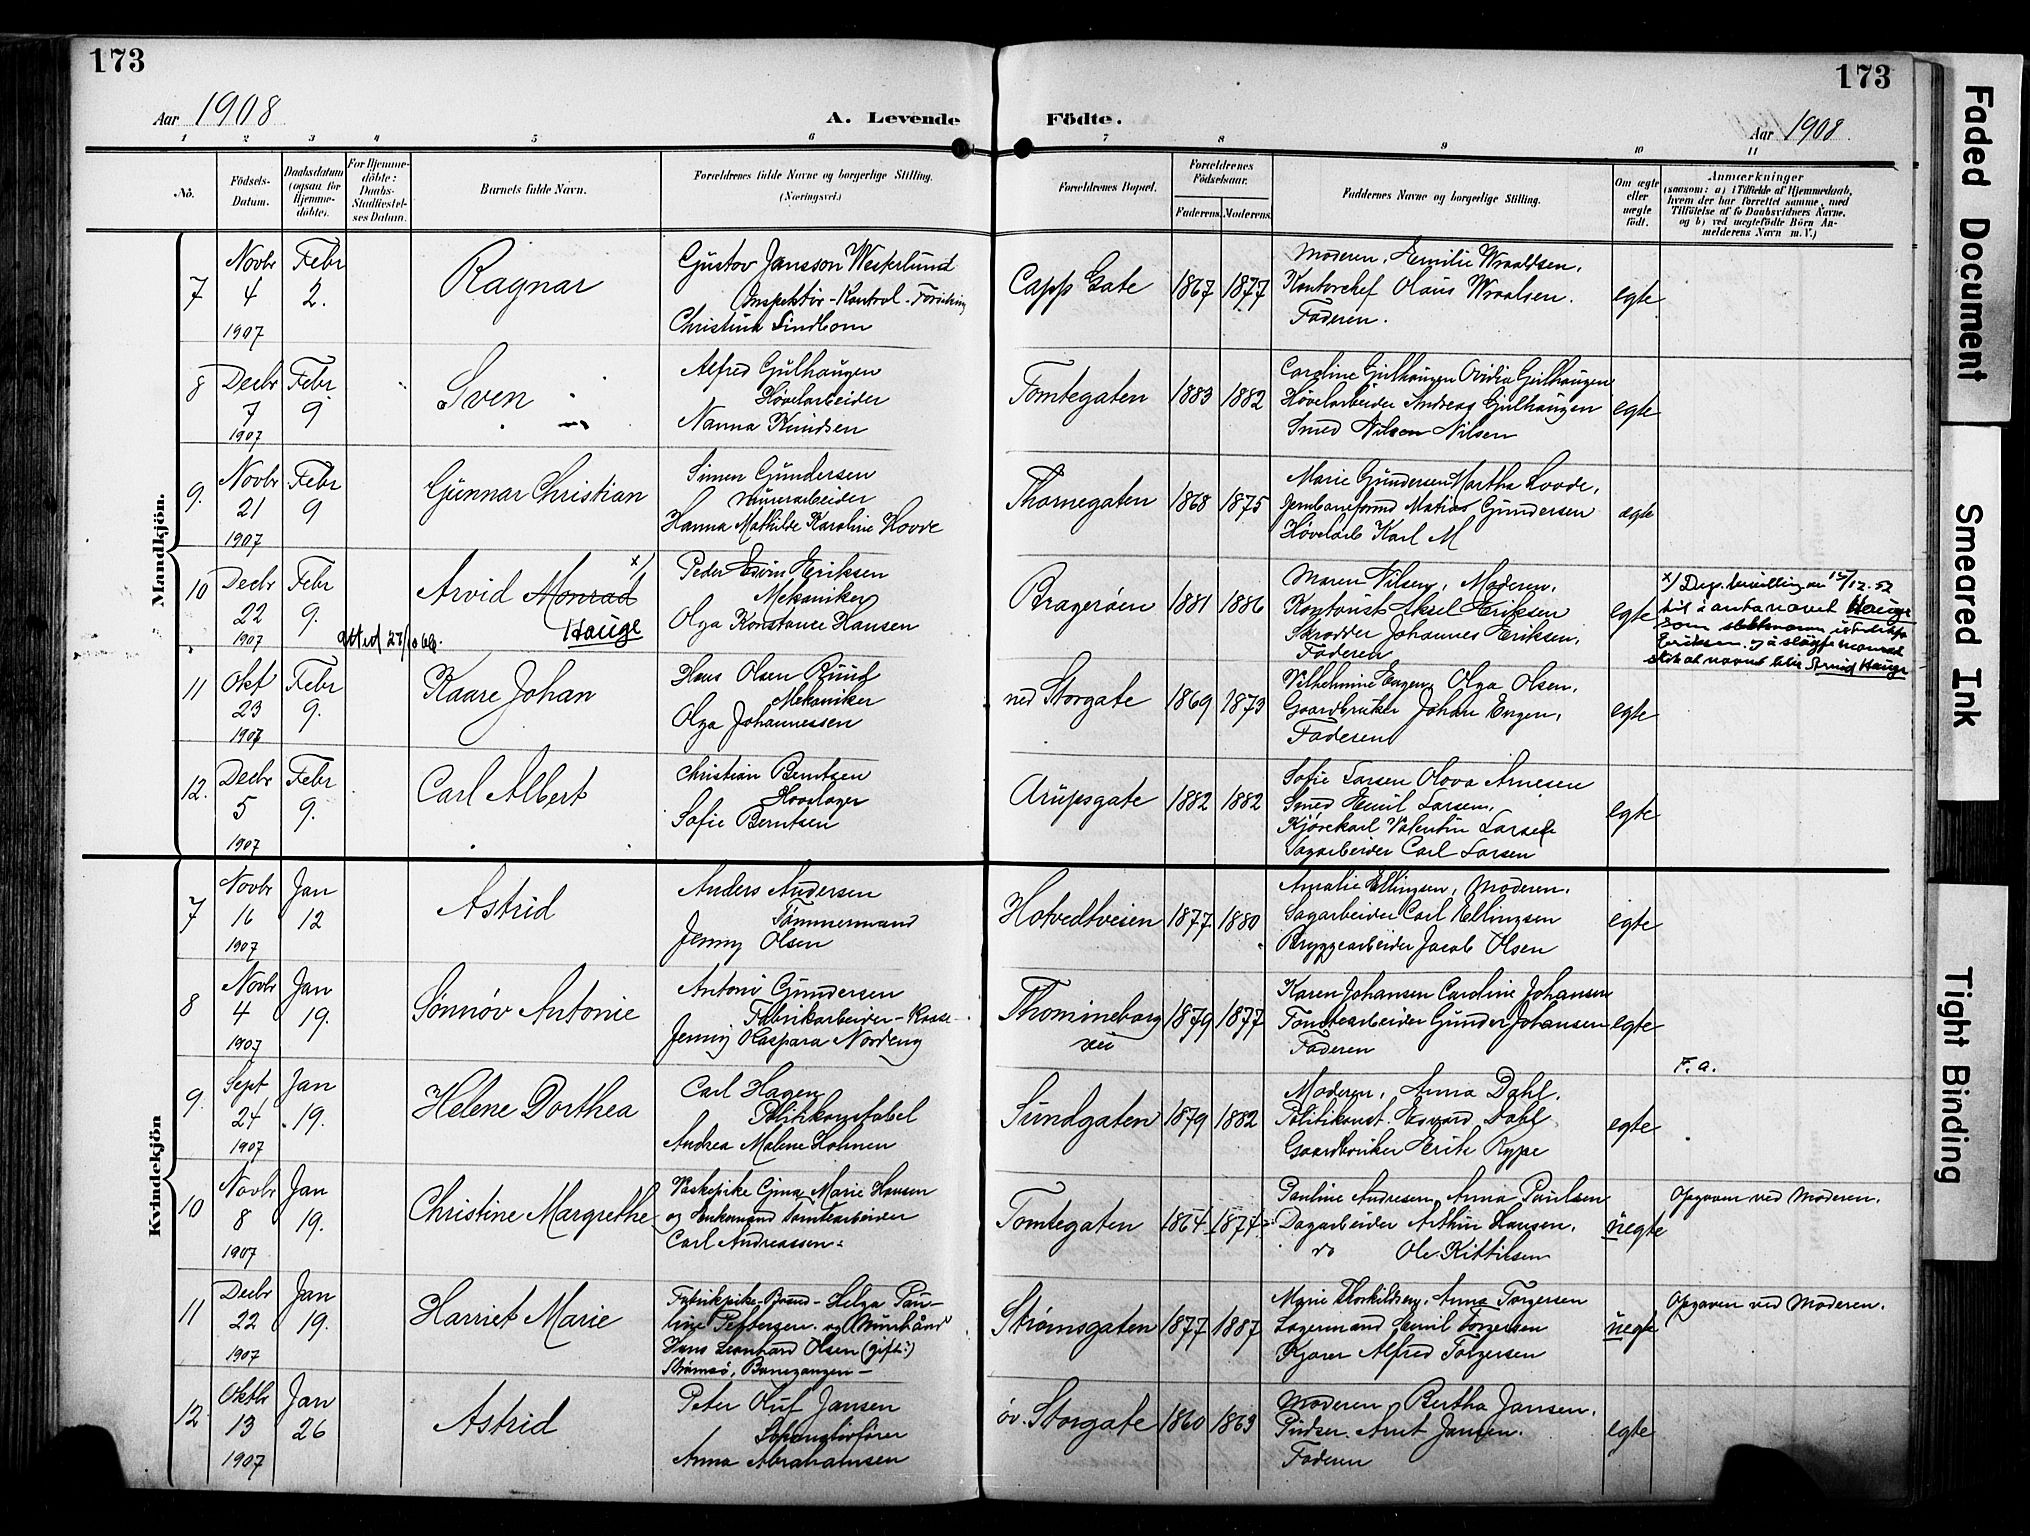 173
173
Aar 1908
A. Levende
Födte.
Aar 1908.
1 2 3 4 5 6 7 8 9 10 11
Nö.
Födsels-Datum.
Daabsdatum (ogsaa for Hjemme-döbte).
For Hjemme-döbte: Daabs-Stadfæstel-ses Datum.
Barnets fulde Navn.
Forældrenes fulde Navne og borgerlige Stilling.
(Næringsvei.)
Forældrenes Bopæl.
Forældrenes Födselsaar.
Faderens. Moderens.
Faddernes Navne og borgerlige Stilling.
Om ægte eller uægte födt.
Anmærkninger
(saasom: a) i Tilfælde af Hjemmedaab,
hvem der har forrettet samme, med
Tilföielse af to Daabsvidners Navne,
og b) ved uægtefödte Börn An-
melderens Navn m. V.)
Mandkjön.
7
Novbr 4 1907
Febr 2.
Ragnar
Gustov Jansson Westerlund
Inspektör - Kontrol - Forsikring
Christina Lindbom
Capp Gate
1867 1877
Moderen, Emilie Wraaldsen,
Kontorchef Olaus Wraalsen.
Faderen.
egte
8
Decbr 7 1907
Febr 9
Sven
Alfred Gulhaugen
Høvelarbeider
Nanna Knudsen
Tomtegaten
1883 1882
Caroline Gulhaugen Ovidia Gulhaugen
Høvelarbeider Andreas Gulhaugen
Smed Nilsen Nilsen
egte
9.
Novbr 21 1907
Febr 9
Gunnar Christian
Simen Gundersen
Murerarbeider
Hanna Mathilde Karoline Hovde
Thornegaten
1868 1875
Marie Gundersen Martha Hovde,
Jernbaneformd Matias Gundersen
Høvelarb Karl M
ægte
10
Decbr 22 1907
Febr 9.
Attest 27/10 66.
Arvid Monrad x)
Hauge
Peder Edvin Eriksen
Mekaniker
Olga Konstance Hansen
Bragerøen
1881 1886
Maren Nilsen, Moderen,
Kontorist Aksel Eriksen
Skrædder Johannes Eriksen,
Faderen
egte
x) Dep. bevilling av 12/12. 52
til å anta navnet Hauge
som slektsnavn istedenfor
Eriksen og å sløyfe Monrad
slik at navnet blir Arvid Hauge
11
Okt 23 1907
Febr 9.
Kaare Johan
Hans Olsen Ruud
Mekaniker
Olga Johannessen
ned Storgate
1869 1873
Vilhelmine Engen, Olga Olsen,
Gaardbruker Johan Engen,
Faderen
egte
12.
Decbr 5 1907
Febr 9.
Carl Albert
Christian Berntsen
Sofie Berntsen
Arupsgate
1882 1882
Sofie Larsen Olova Arnesen
Smed Emil Larsen,
Kjørekarl Valentin Larsen
Sagarbeider Carl Larsen
egte
Kvindekjön
7
Novbr 16 1907
Jan 12
Astrid
Anders Andersen
Tømmermand
Jenny Olsen
Hotvedtveien
1877 1880
Amalie Ellingsen, Moderen,
Sagarbeider Carl Ellingsen
Bryggearbeider Jacob Olsen
egte
8
Novbr 4 1907
Jan 19.
Sønnøv Antonie
Anton Gundersen
Fabrikarbeider - Kasse -
Jenny Kaspara Nordeng
Thomineborg
vei
1879 1877
Karen Johansen Caroline Johansen
Tomtearbeider Gunder Johansen
Faderen
egte
F. a.
9.
Sept 24 1907
Jan 19.
Helene Dorthea
Carl Hagen
Politikonstabel
Andrea Malene Holmen
Sundgaten
1879 1882
Moderen, Anna Dahl.
Politikonst. Edvard Dahl
Gaardbruker Erik Rype
egte
10
Novbr 8 1907
Jan 19.
Christine Margrethe
Vaskepike Gina Marie Hansen
og Enkemand Tomtearbeider
Carl Andreassen
Tomtegaten
1864 1874
Pauline Andresen, Anna Paulsen
Dagarbeider Arthur Hansen,
do Ole Kittilsen
uegte
Opgaven ved Moderen.
11
Decbr 22 1907
Jan 19.
Harriet Marie
Fabrikpike - Brand - Helga Pau-
line Pettersen og Murhåndv
Hans Leonhard Olsen (gift:)
Strømsö, Banegangen -
Strømsgaten
1877 1887
Marie Thorkildsen, Anna Torgersen
Lagermand Emil Torgersen
Kjører Alfred Torgersen
uegte
Opgaven ved Moderen.
12
Oktbr 13 1907
Jan 26
Astrid
Peter Oluf Jansen
Anna Abrahamsen
öv. Storgate
1860 1863
Moderen Bertha Jansen,
Pudser Arnt Jansen.
Faderen
egte
Faded Document
Smeared Ink
Tight Binding